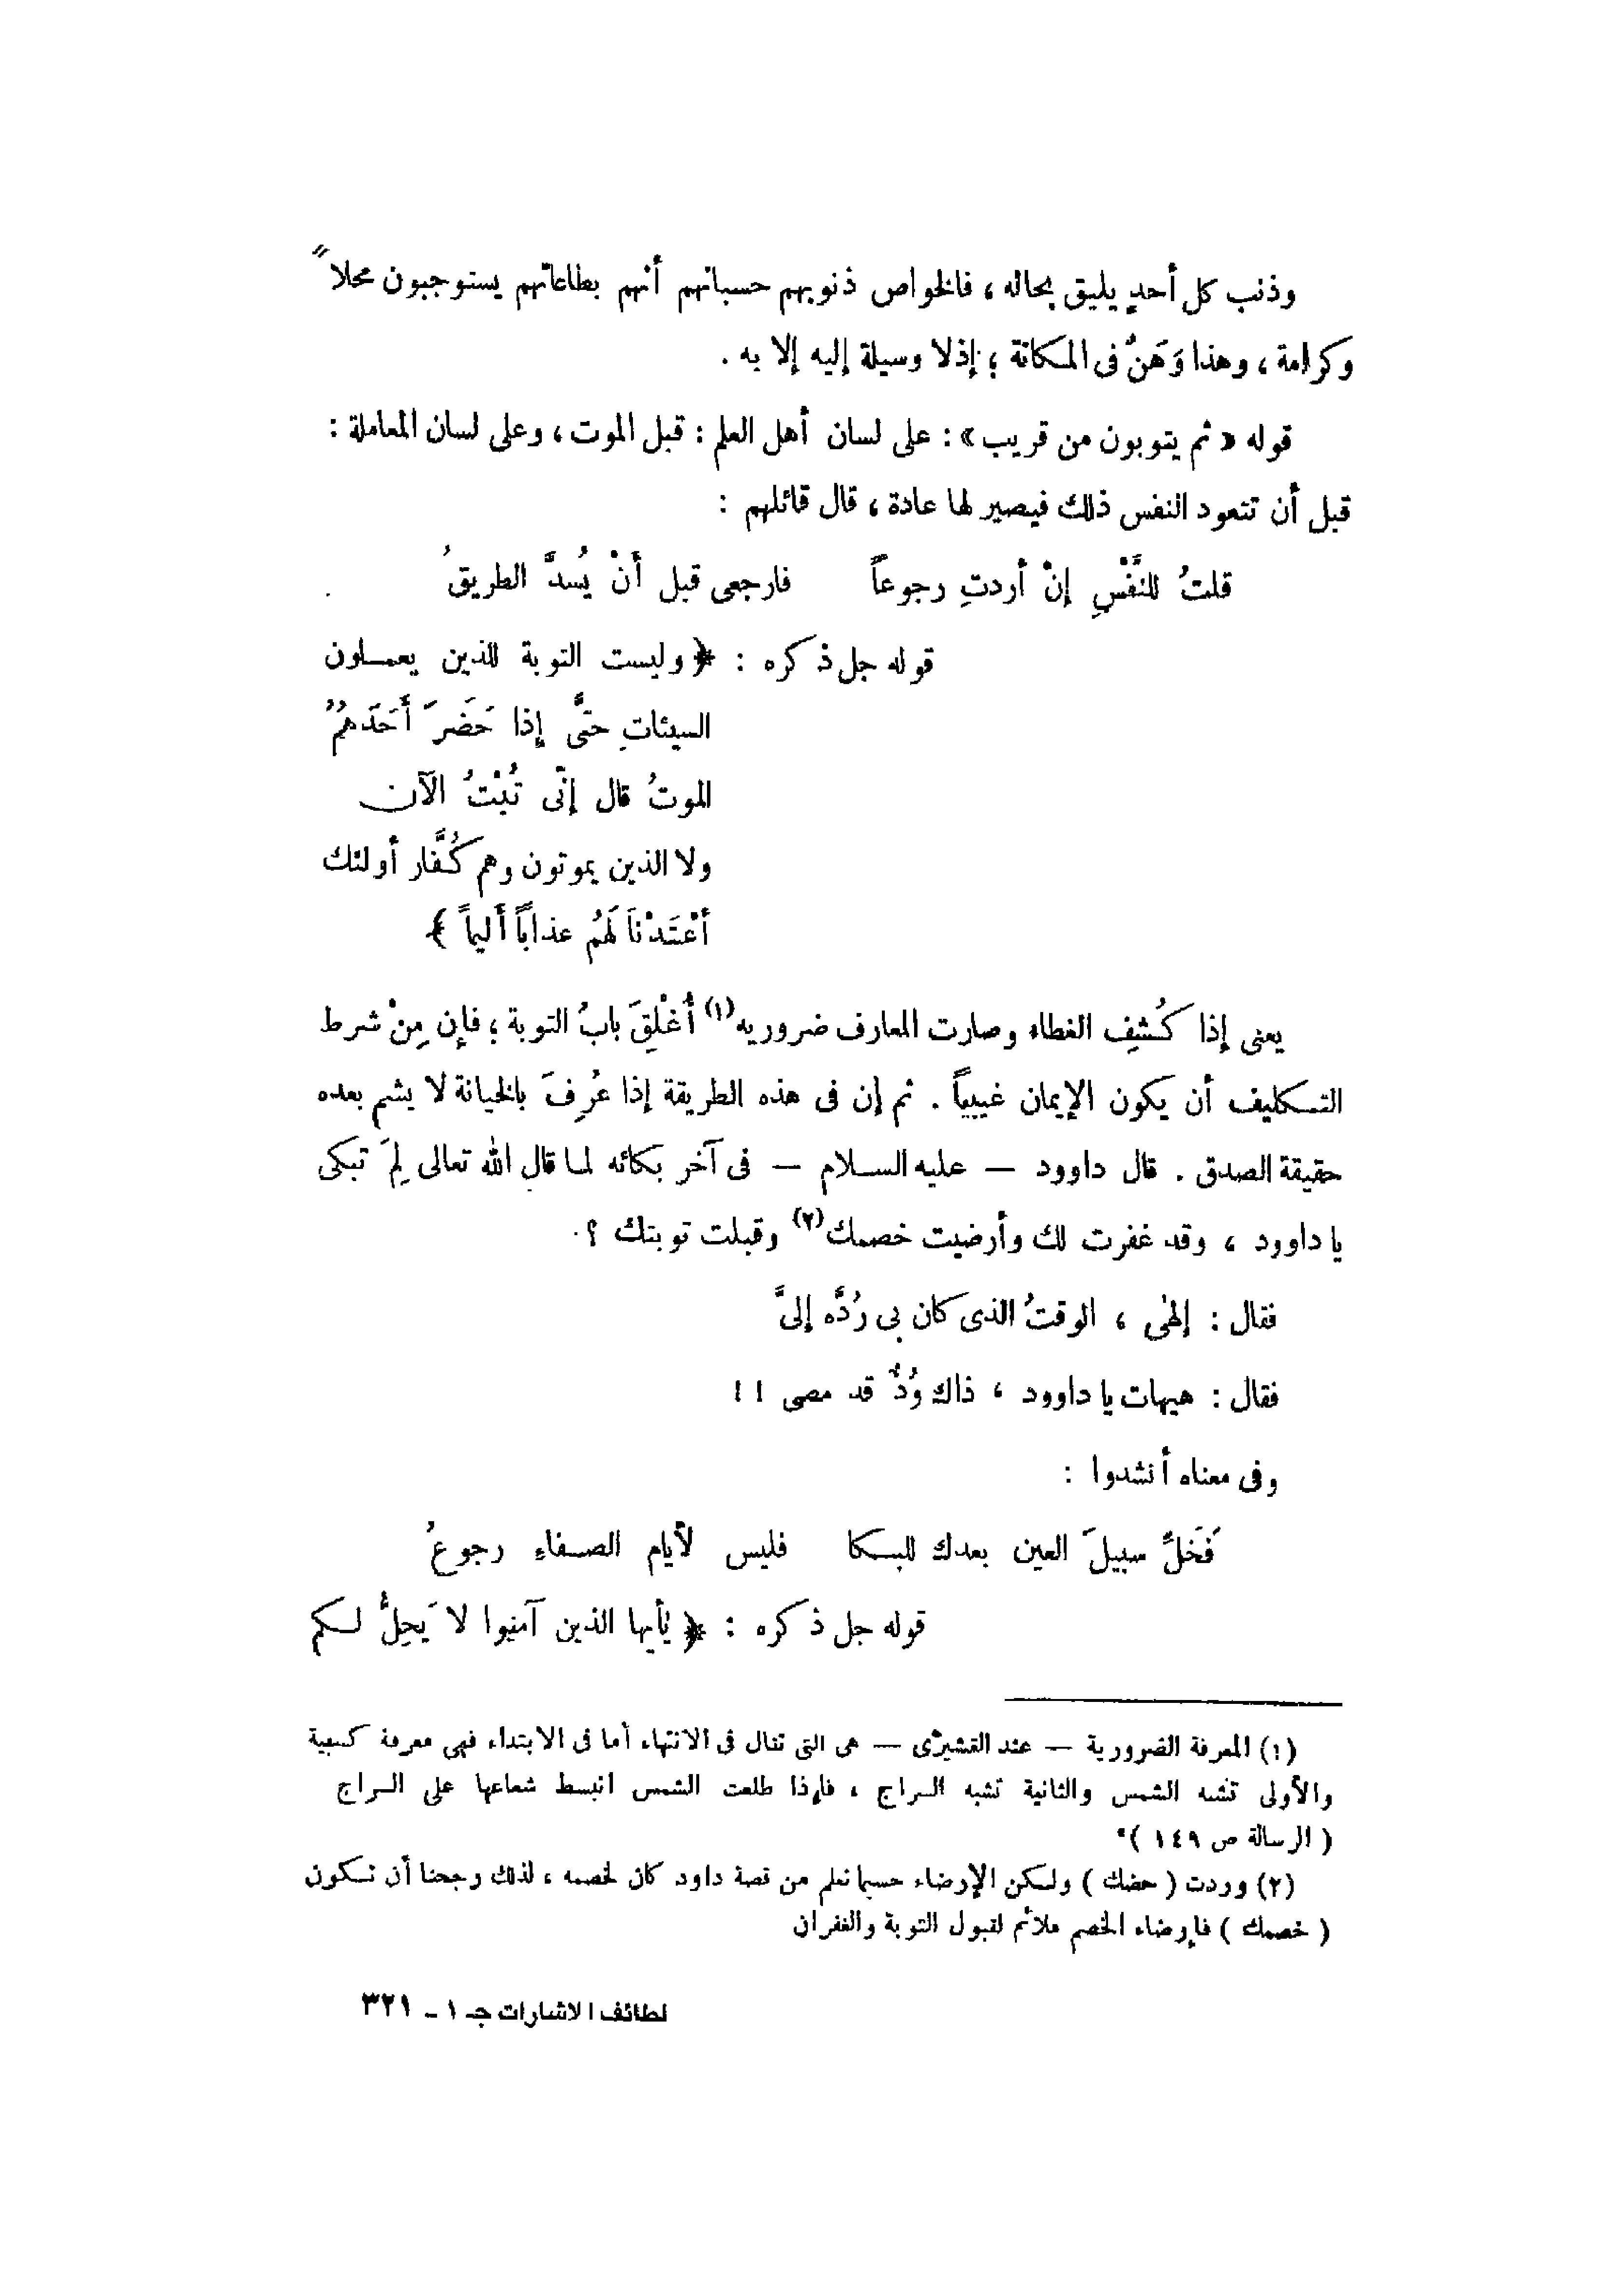 وذنب كل أحدٍ يليق بحاله ، فالخواص ذنوبهم حسبانهم أنهم بطاعاتهم يستوجبون محلاً
وكرامة ، وهذا وَهَنٌ فى المكانة ؛ إذ لا وسيلة إليه إلا به .
قوله « ثم يتوبون من قريب » : على لسان أهل العلم : قبل الموت ، وعلى لسان المعاملة :
قبل أن تتعود النفس ذلك فيصير لها عادة ، قال قائلهم :
قلتُ للنَّفْسِ إنْ أردتِ رجوعاً فارجعى قبل أنْ يُسدَّ الطريقُ
قوله جل ذكره : ﴿ وليست التوبة للذين يعملون
السيئاتِ حتَّى إذا حَضَرَ أَحَدَهُمُ
الموتُ قال إنّى تُبْتُ الآن
ولا الذين يموتون وهم كُفَّار أولئك
أعْتَدْنَا لَهُم عذاباً أليماً ﴾
يعنى إذا كُشِفِ الغطاء وصارت المعارف ضروريه(١) أُغْلِقَ بابُ التوبة ؛ فإن مِنْ شرط
التكليف أن يكون الإيمان غيبياً . ثم إن فى هذه الطريقة إذا عُرِفَ بالخيانة لا يشم بعده
حقيقة الصدق . قال داوود — عليه السلام — فى آخر بكائه لما قال الله تعالى لِمَ تبكى
يا داوود ، وقد غفرت لك وأرضيت خصمك(٢) وقبلت توبتك ؟
فقال : إلهى ، الوقتُ الذى كان بى رُدَّه إلىَّ
فقال : هيهات يا داوود ، ذاك وُدٌّ قد مصى ! !
وفى معناه أنشدوا :
فَخَلِّ سبيلَ العين بعدك للبكا فليس لأيام الصفاءِ رجوعُ
قوله جل ذكره : ﴿ يأيها الذين آمنوا لا يَحِلُّ لكم
(١) المعرفة الضرورية — عند القشيرى — هى التى تنال فى الانتهاء أما فى الابتداء فهى معرفة كسبية
والأولى تشبه الشمس والثانية تشبه السراج ، فإذا طلعت الشمس انبسط شعاعها على السراج
( الرسالة ص ١٤٩ ).
(٢) وردت ( حضك ) ولكن الإرضاء حسبما نعلم من قصة داود كان لخصمه ، لذلك رجحنا أن تكون
( خصمك ) فإرضاء الخصم ملائم لقبول التوبة والغفران
لطائف الاشارات جـ ١ ـ ٣٢١